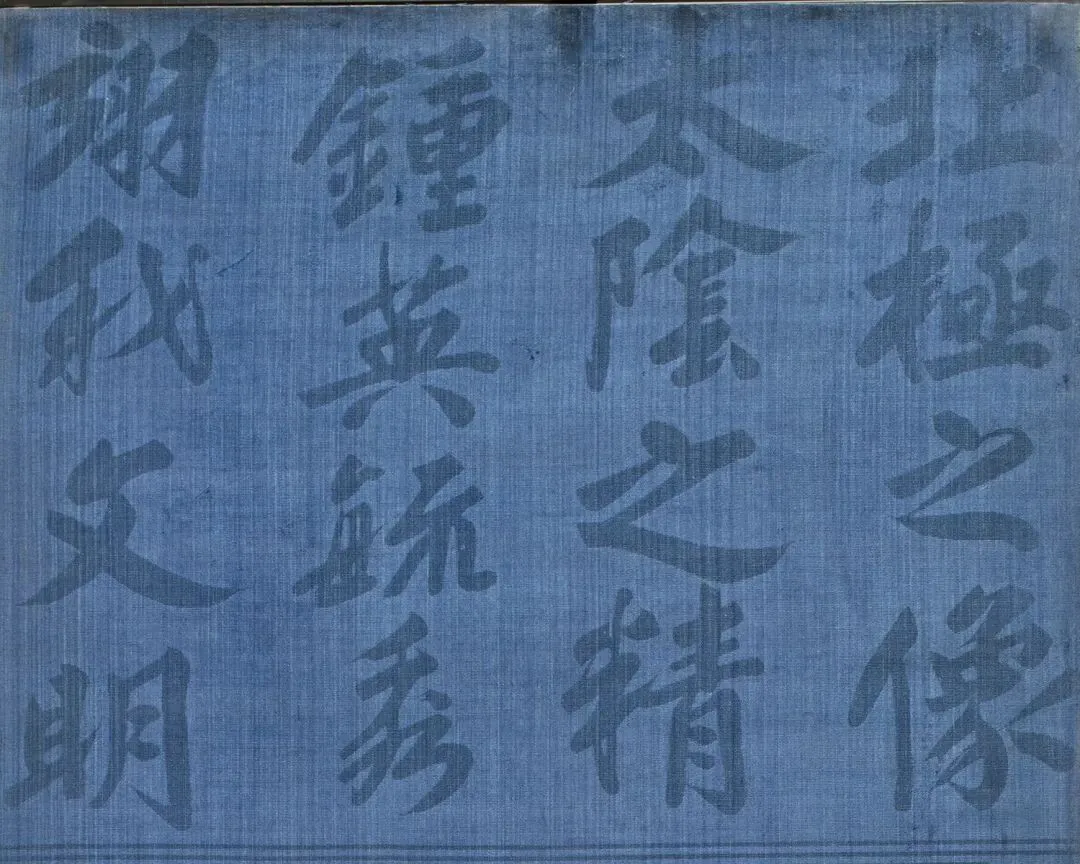 北極之像
太陰之精
鍾英毓秀
翊我文明